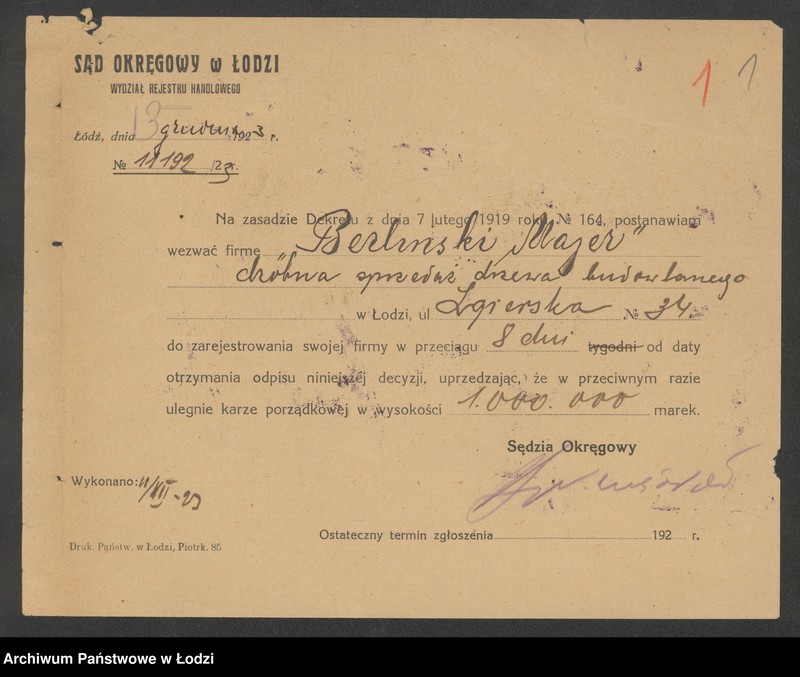 SĄD OKRĘGOWY w ŁODZI
WYDZIAŁ REJESTRU HANDLOWEGO
1 1
Łódź, dnia 13 grudnia 1923 r.
№ 11192 /23.
Na zasadzie Dekretu z dnia 7 lutego 1919 roku № 164, postanawiam
wezwać firmę „Berliński Majer”
dróbna sprzedaż drzewa budowlanego
w Łodzi, ul Zgierska № 34
do zarejestrowania swojej firmy w przeciągu 8 dni tygodni od daty
otrzymania odpisu niniejszej decyzji, uprzedzając, że w przeciwnym razie
ulegnie karze porządkowej w wysokości 1.000.000 marek.
Sędzia Okręgowy
Wykonano: 11/XII-23
Ostateczny termin zgłoszenia 192 r.
Druk. Państw. w Łodzi, Piotrk. 85
Archiwum Państwowe w Łodzi